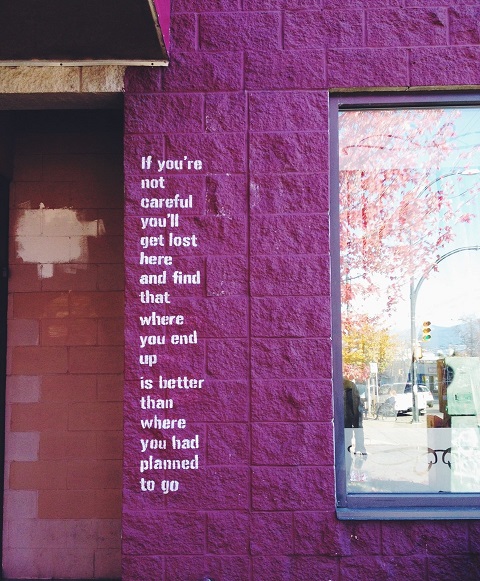 If you're
not
careful
you'll
get lost
here
and find
that
where
you end
up
is better
than
where
you had
planned
to go